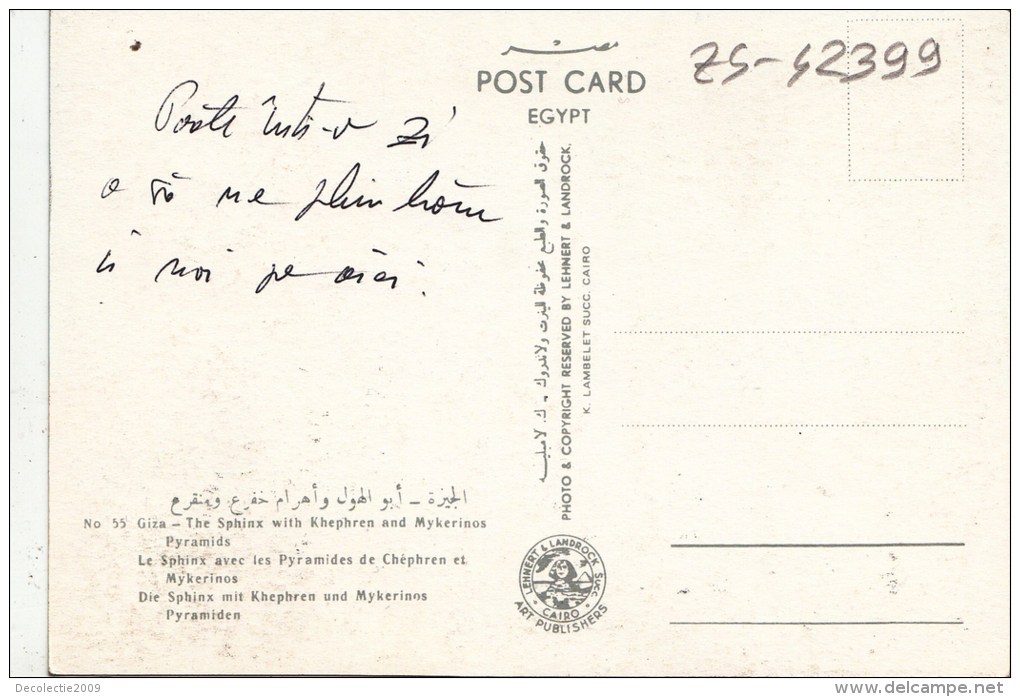 مصر
POST CARD
EGYPT
ZS-42399
Poate într-o zi
o să ne plimbăm
și noi pe aici.
حقوق الصورة والطبع محفوظة للينرت ولاندروك - ك. لامبليه
PHOTO & COPYRIGHT RESERVED BY LEHNERT & LANDROCK,
K. LAMBELET SUCC. CAIRO
الجيزة - أبو الهول وأهرام خفرع ومنقرع
No 55 Giza – The Sphinx with Khephren and Mykerinos
Pyramids
Le Sphinx avec les Pyramides de Chéphren et
Mykerinos
Die Sphinx mit Khephren und Mykerinos
Pyramiden
LEHNERT & LANDROCK SUCC.
CAIRO
ART PUBLISHERS
Decolectie2009
delcampe.net